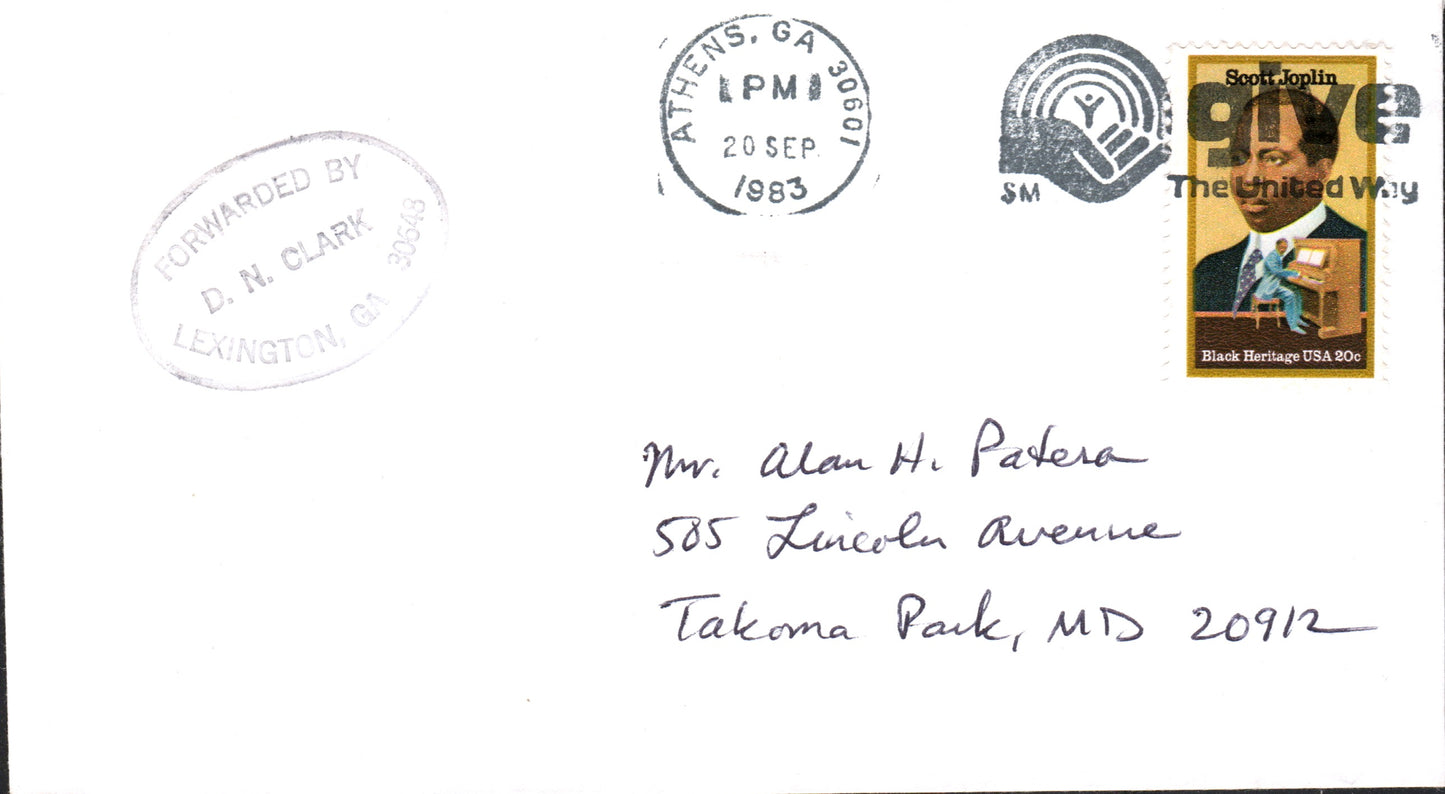 FORWARDED BY
D. N. CLARK
LEXINGTON, GA 30648
ATHENS, GA 30601
PM
20 SEP
1983
SM
give
The United Way
Scott Joplin
Black Heritage USA 20c
Mr. Alan H. Patera
505 Lincoln Avenue
Takoma Park, MD 20912